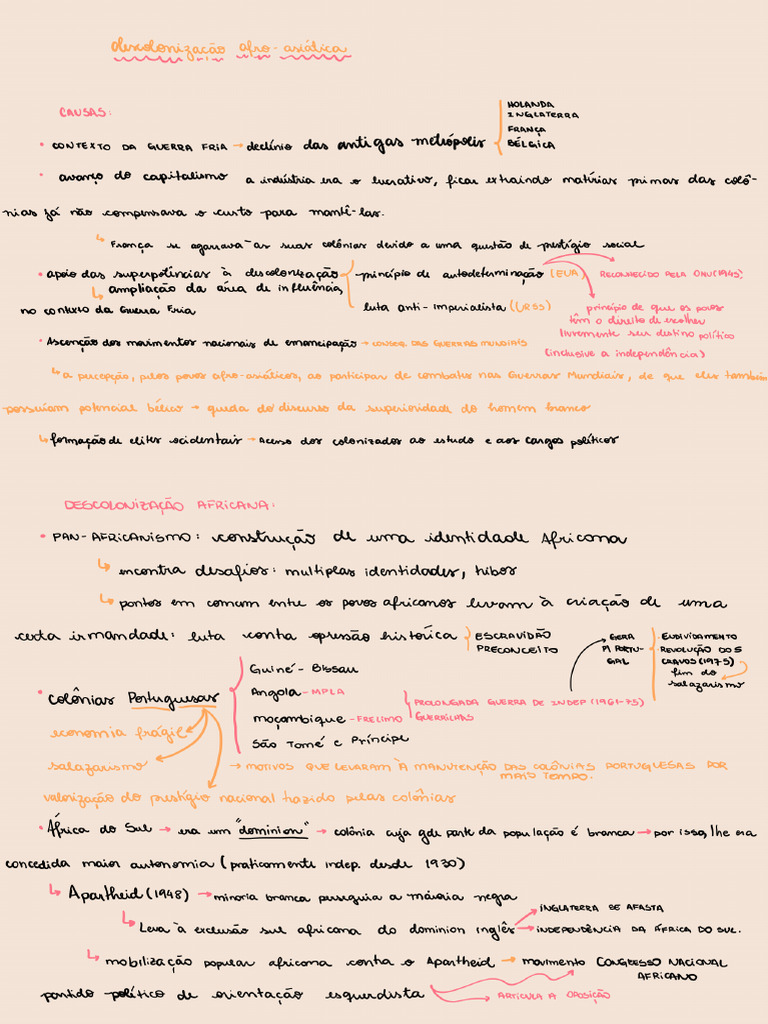 descolonização afro-asiática
CAUSAS:
HOLANDA
INGLATERRA
FRANÇA
BÉLGICA
• CONTEXTO DA GUERRA FRIA → declínio das antigas metrópolis
• avanço do capitalismo a indústria era o lucrativo, ficar extraindo matérias primas das colô-
nias já não compensava o custo para mantê-las.
↳ França se agarrava às suas colônias devido a uma questão de prestígio social
• apoio das superpotências à descolonização princípio de autodeterminação (EUA) RECONHECIDO PELA ONU (1945)
↳ ampliação da área de influência,
no contexto da Guerra Fria luta anti-imperialista (URSS)
princípio de que os povos
têm o direito de escolher
livremente seu destino político
(inclusive a independência)
• Ascenção dos movimentos nacionais de emancipação → CONSEQ. DAS GUERRAS MUNDIAIS
↳ a percepção, pelos povos afro-asiáticos, ao participar de combates nas Guerras Mundiais, de que eles também
possuíam potencial bélico → queda do discurso da superioridade do homem branco
↳ formação de elites ocidentais → Acesso dos colonizados ao estudo e aos cargos políticos
DESCOLONIZAÇÃO AFRICANA:
• PAN-AFRICANISMO: construção de uma identidade Africana
↳ encontra desafios: multiplas identidades, tribos
↳ pontos em comum entre os povos africanos levam à criação de uma
certa irmandade: luta contra opressão histórica ESCRAVIDÃO
PRECONCEITO
GERA
P/ PORTU-
GAL
ENDIVIDAMENTO
REVOLUÇÃO DOS
CRAVOS (1975)
fim do
salazarismo
• colônias Portuguesas
Guiné-Bissau
Angola - MPLA
moçambique - FRELIMO
São Tomé e Príncipe
PROLONGADA GUERRA DE INDEP (1961-75)
GUERRILHAS
economia frágil
salazarismo
→ MOTIVOS QUE LEVARAM À MANUTENÇÃO DAS COLÔNIAS PORTUGUESAS POR
MAIS TEMPO.
valorização do prestígio nacional trazido pelas colônias
• África do Sul → era um "dominion" → colônia cuja gde parte da população é branca → por isso, lhe era
concedida maior autonomia (praticamente indep. desde 1930)
↳ Apartheid (1948) → minoria branca perseguia a maioria negra
↳ Leva à exclusão sul africana do dominion inglês → INGLATERRA SE AFASTA
→ INDEPENDÊNCIA DA ÁFRICA DO SUL.
↳ mobilização popular africana contra o Apartheid → movimento CONGRESSO NACIONAL
AFRICANO
partido político de orientação esquerdista → ARTICULA A OPOSIÇÃO